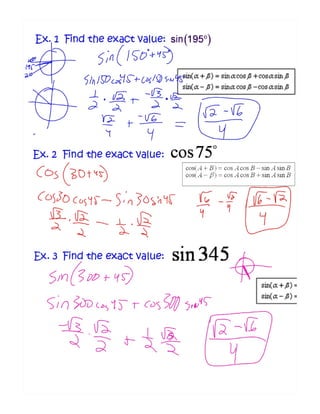 Ex. 1 Find the exact value: sin(195°)
180
195
210
sin(150°+45°)
sin150cos45+cos150sin45
sin(α + β) = sin α cos β + cos α sin β
sin(α − β) = sin α cos β − cos α sin β
1/2 · √2/2 + −√3/2 · √2/2
√2/4 + −√6/4 = (√2−√6)/4
Ex. 2 Find the exact value: cos 75°
cos(30+45)
cos(A + B) = cos A cos B − sin A sin B
cos(A − B) = cos A cos B + sin A sin B
cos30cos45 − sin30sin45
√3/2 · √2/2 − 1/2 · √2/2
√6/4 − √2/4
(√6−√2)/4
Ex. 3 Find the exact value: sin 345
sin(300+45)
sin(α + β) =
sin(α − β) =
sin300cos45 + cos300 sin45
−√3/2 · √2/2 + 1/2 √2/2
(√2−√6)/4